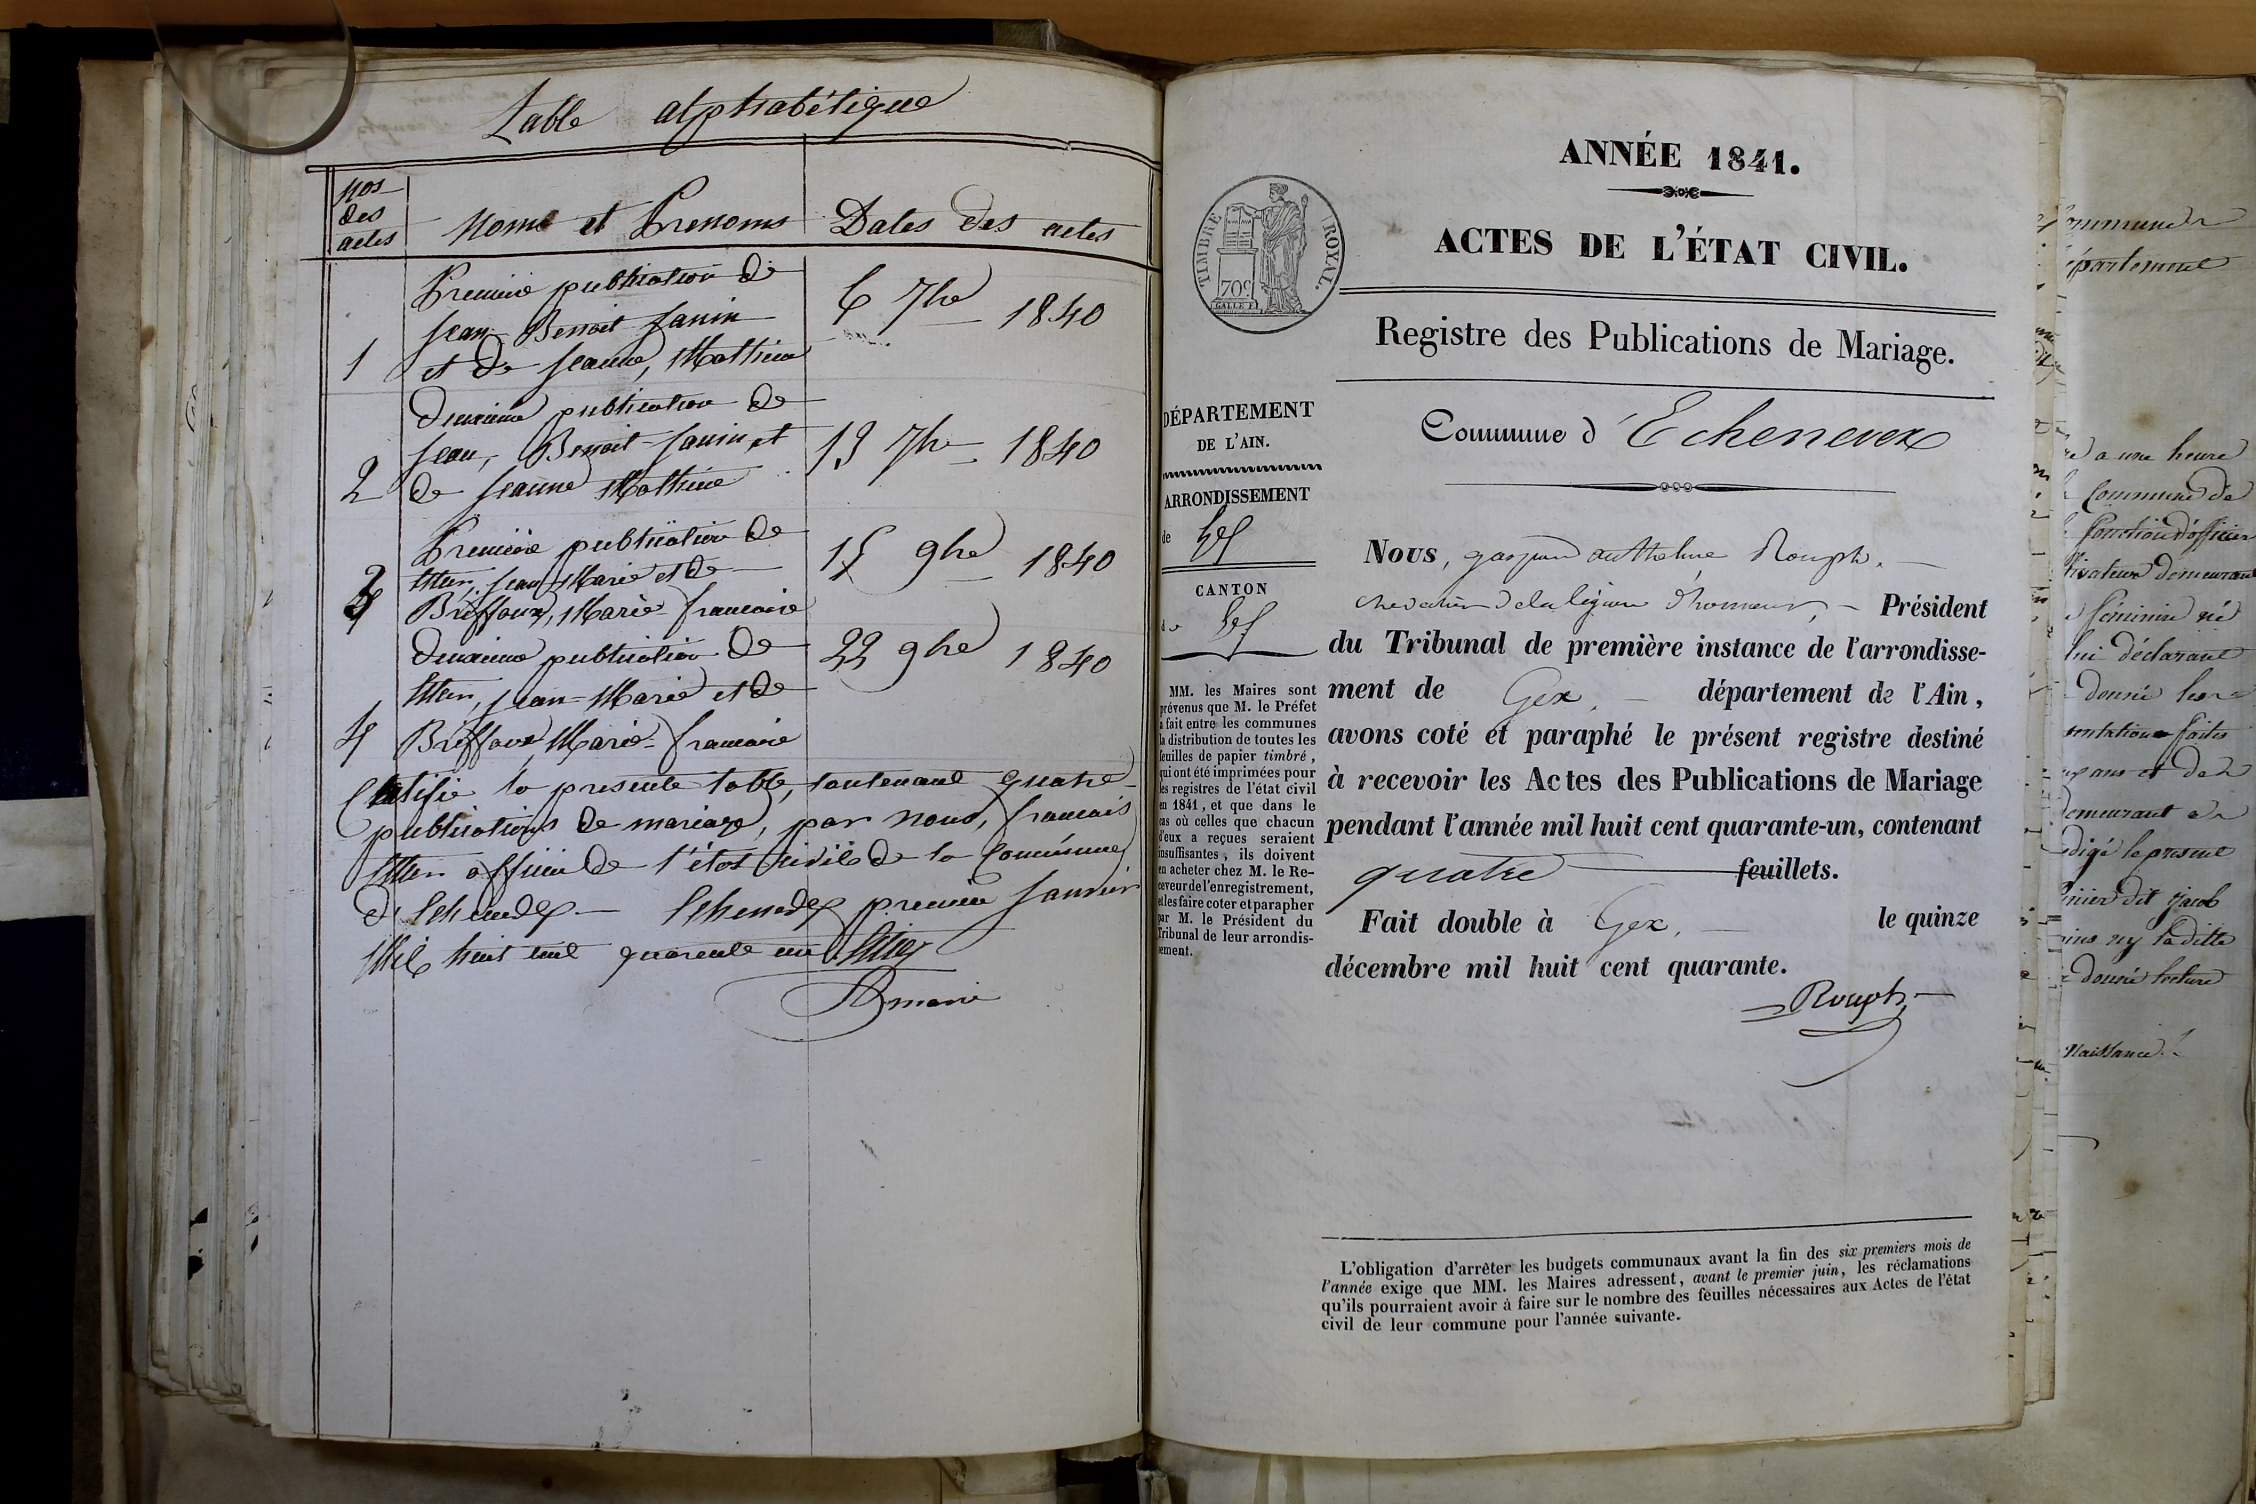 Table alphabétique
Nos
des
actes
Noms et Prenoms
Dates des actes
Premiere publication de
Jean Benoit Janin
1 et de Jeanne, Mathieu
6 7bre 1840
Deuxieme publication de
Jean, Benoit Janin, et
2 de Jeanne Mathieu
13 7bre 1840
Premiere publication de
Jean Marie et de
3 Briffaux, Marie francoise
15 9bre 1840
Deuxieme publication de
Jean Marie et de
4 Briffaux, Marie francoise
22 9bre 1840
Certifie la presente table, contenant quatre
publications de mariage, par nous, francois
officier de l'état civil de la Commune
premier Janvier
Mil huit cent quarante un
ANNÉE 1841.
ACTES DE L'ÉTAT CIVIL.
TIMBRE ROYAL.
70c
Registre des Publications de Mariage.
Commune d'Echenevex
DÉPARTEMENT
DE L'AIN.
ARRONDISSEMENT
de Gex
CANTON
de Gex
MM. les Maires sont
prévenus que M. le Préfet
a fait entre les communes
la distribution de toutes les
feuilles de papier timbré,
qui ont été imprimées pour
les registres de l'état civil
en 1841, et que dans le
cas où celles que chacun
d'eux a reçues seraient
insuffisantes, ils doivent
en acheter chez M. le Re-
ceveur de l'enregistrement,
et les faire coter et parapher
par M. le Président du
Tribunal de leur arrondis-
sement.
Nous, gaspard anthelme Rouph,
chevalier de la légion d'honneur, Président
du Tribunal de première instance de l'arrondisse-
ment de Gex, département de l'Ain,
avons coté et paraphé le présent registre destiné
à recevoir les Actes des Publications de Mariage
pendant l'année mil huit cent quarante-un, contenant
quatre feuillets.
Fait double à Gex, le quinze
décembre mil huit cent quarante.
Rouph
L'obligation d'arrêter les budgets communaux avant la fin des six premiers mois de
l'année exige que MM. les Maires adressent, avant le premier juin, les réclamations
qu'ils pourraient avoir à faire sur le nombre des feuilles nécessaires aux Actes de l'état
civil de leur commune pour l'année suivante.
a une heure
Commune de
demeurant
féminin né
lui déclarant
faites
ans et de
demeurant a
le present
dit jacob
donné lecture
Naissance